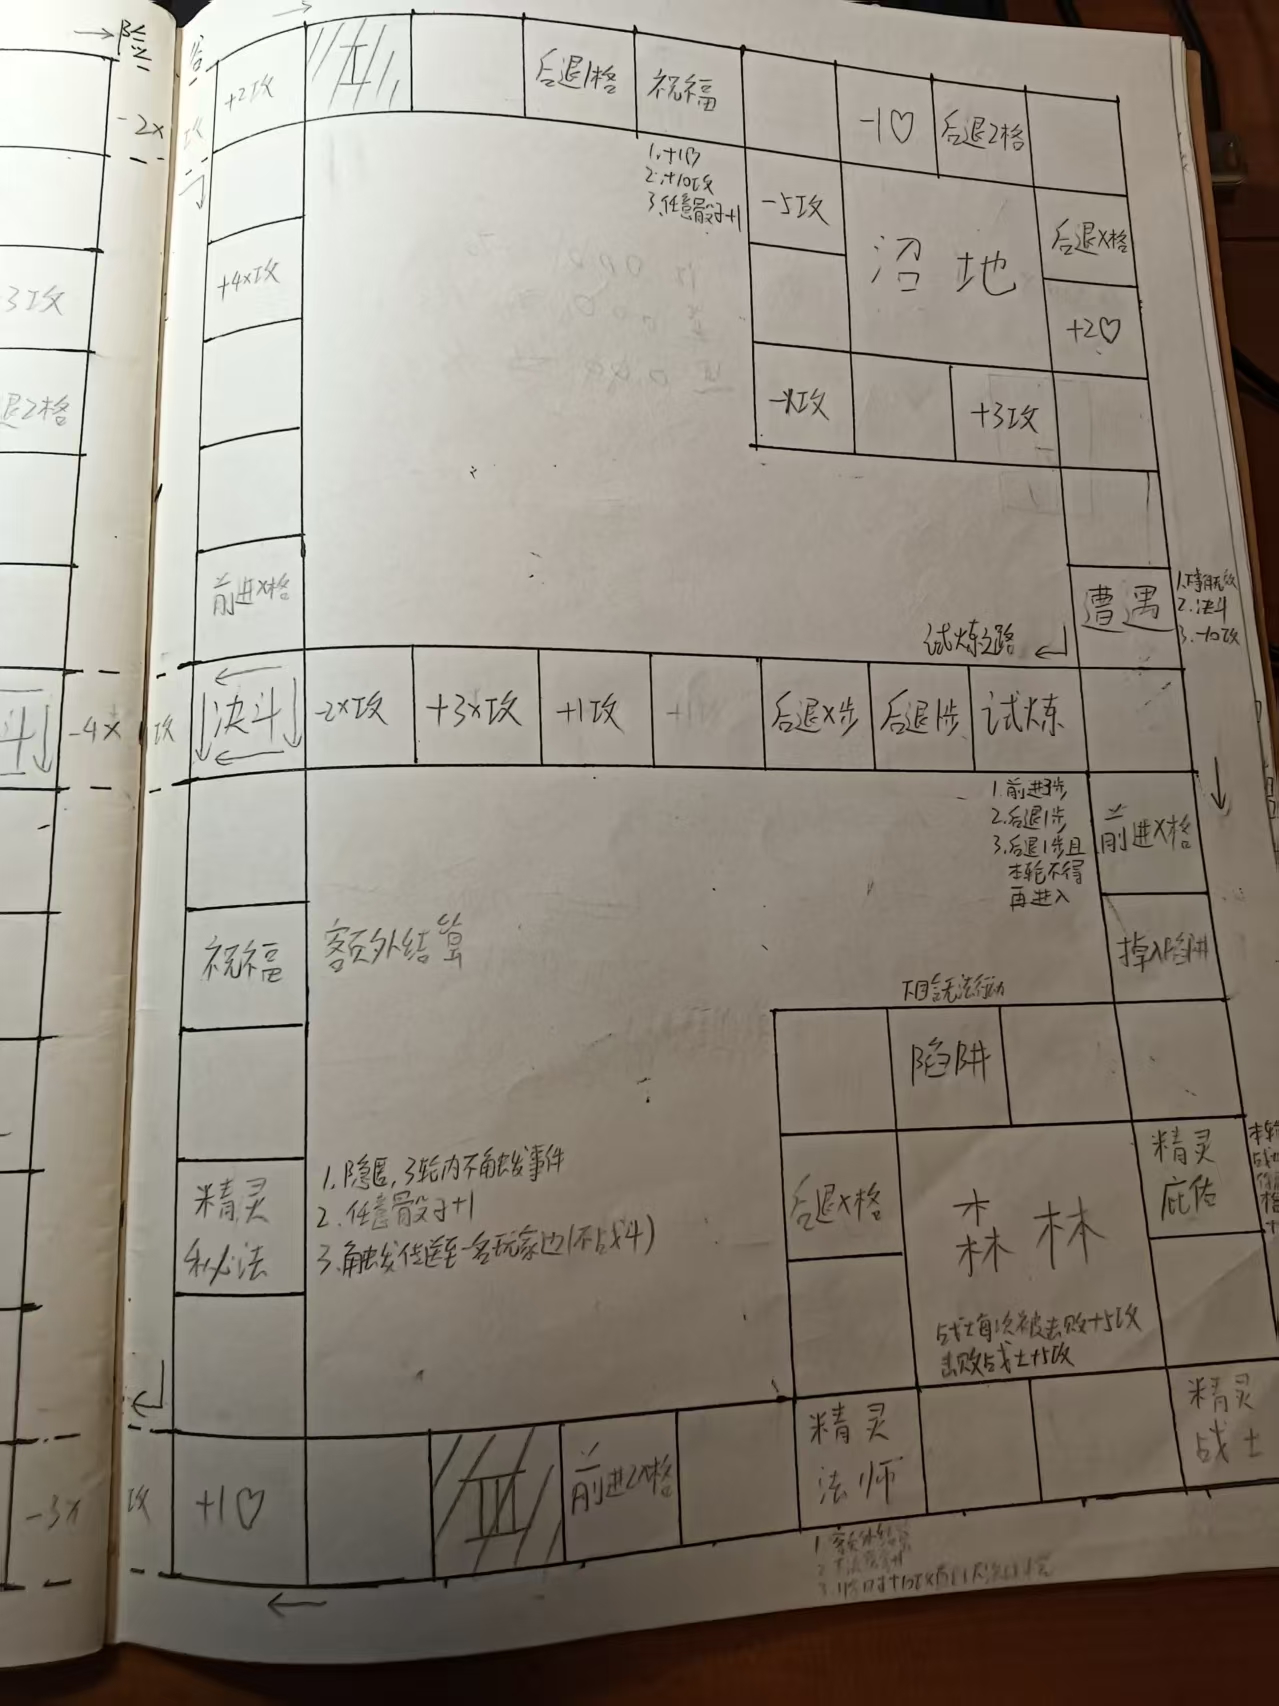 +2攻
I
后退1格
祝福
-1♡
后退2格
1.+1♡
2.+10攻
3.任意骰子+1
-2x
攻
-5攻
沼地
后退x格
+2♡
-x攻
+3攻
+4x攻
3攻
退2格
前进x格
遭遇
2.决斗
3.-10攻
试炼之路
斗
-4x
攻
决斗
-2x攻
+3x攻
+1攻
后退x步
后退1步
试炼
1.前进3步
2.后退1步
3.后退1步且
本轮不得
再进入
前进x格
掉入陷阱
祝福
额外结算
陷阱
精灵
庇佑
后退x格
森林
战士每次被击败+5攻
击败战士+5攻
精灵
秘法
1.隐匿,3轮内不触发事件
2.任意骰子+1
3.触发传送至一名玩家边(不战斗)
-3x
攻
+1♡
III
前进2x格
精灵
法师
精灵
战士